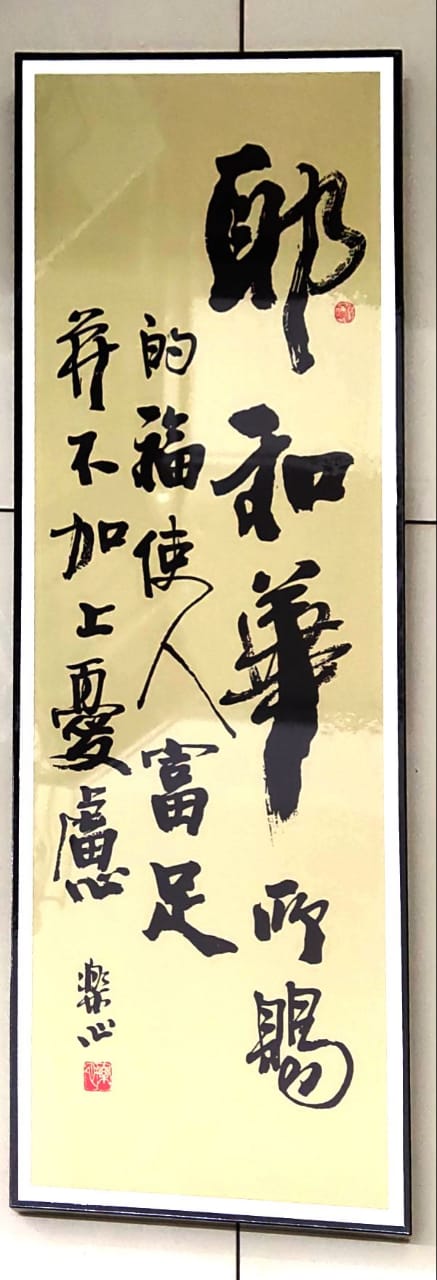 耶和華所賜
的福使人富足
並不加上憂慮
樂心